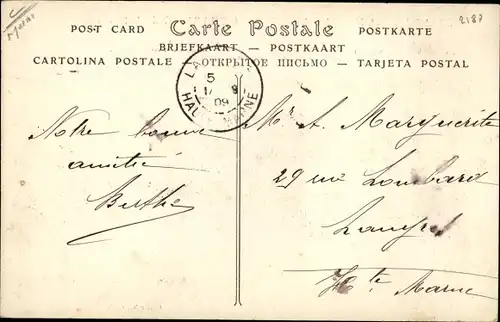 2187
POST CARD Carte Postale POSTKARTE
BRIEFKAART — POSTKAART
CARTOLINA POSTALE — ОТКРЫТОЕ ПИСЬМО — TARJETA POSTAL
5
09
HAUTE-MARNE
Notre bonne
amitié
Berthe
Mr A. Marguerite
29 rue Lombard
Hte Marne